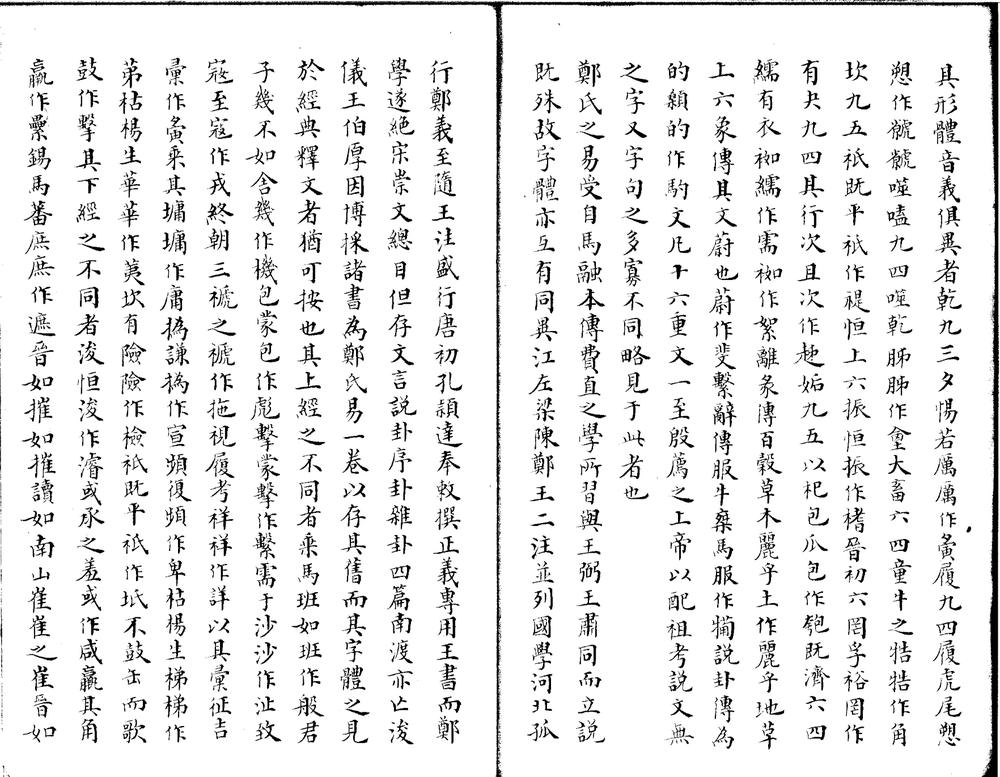 其形體音義俱異者乾九三夕惕若厲厲作夤履九四履虎尾愬
愬作虩虩噬嗑九四噬乾胏胏作㙑大畜六四童牛之牿牿作角
坎九五祇既平祇作禔恒上六振恒振作榰晉初六罔孚裕罔作
有夬九四其行次且次作趑姤九五以杞包瓜包作匏既濟六四
繻有衣袽繻作需袽作絮離彖傳百穀草木麗乎土作麗乎地草
上六象傳其文蔚也蔚作斐繫辭傳服牛乘馬服作犕説卦傳為
的顙的作馰文凡十六重文一至殷薦之上帝以配祖考説文無
之字又字句之多寡不同略見于此者也
鄭氏之易受自馬融本傳費直之學所習與王弼王肅同而立説
既殊故字體亦互有同異江左梁陳鄭王二注並列國學河北孤
行鄭義至隨王注盛行唐初孔頴達奉敕撰正義專用王書而鄭
學遂絕宋崇文總目但存文言説卦序卦雜卦四篇南渡亦亡浚
儀王伯厚因博採諸書為鄭氏易一卷以存其舊而其字體之見
於經典釋文者猶可按也其上經之不同者乘馬班如班作般君
子幾不如舍幾作機包蒙包作彪擊蒙擊作繫需于沙沙作沚致
寇至寇作戎終朝三褫之褫作拕視履考祥祥作詳以其彙征吉
彙作夤乘其墉墉作庸撝謙撝作宣頻復頻作卑枯楊生梯梯作
荑枯楊生華華作荑坎有險險作檢祇既平祇作坻不鼓缶而歌
鼓作擊其下經之不同者浚恒浚作濬或承之羞或作咸羸其角
羸作纍錫馬蕃庶庶作遮晉如摧如摧讀如南山崔崔之崔晉如